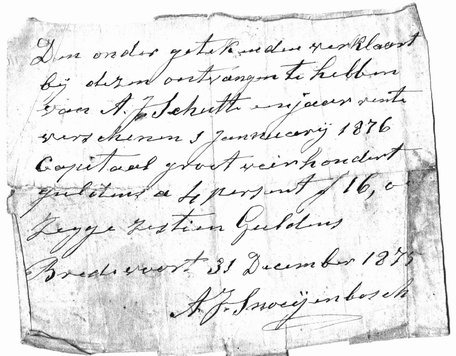 Den onder getekenden verklaart
bij dezen ontvangen te hebben
van A. J. Schutte en jaar rente
verschenen 1 Jannuarij 1876
Capitaal groot vierhondert
guldens a 4 persent f 16,
Zegge zestien Guldens
Bredevoort 31 December 1875
A. J. Snoeijenbosch